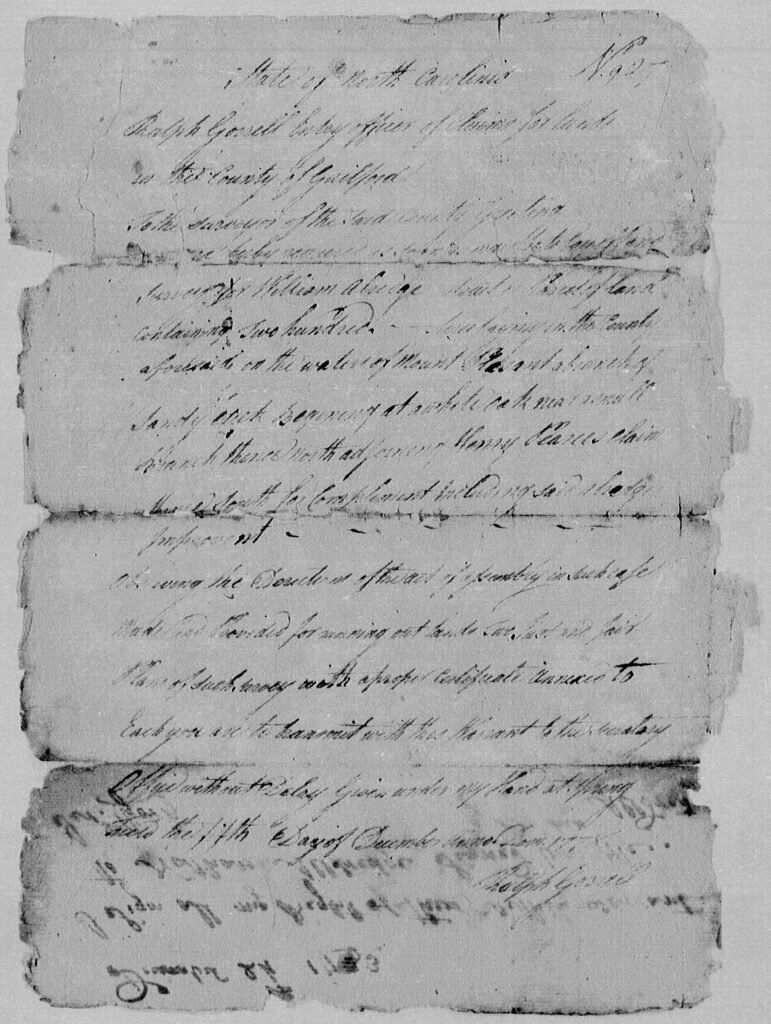 State of North Carolina
No 927
Ralph Gorrell Entry officer of Claims for Lands
in the County of Guilford
To the surveyor of the said County Greeting
You are hereby required as soon as may be to lay off and
survey for William Aledge tract or Parcel of land
Containing two hundred — acres laying in the County
aforesaid on the waters of mount Pleasant a branch of
Sandy Creek Begining at a white oak near a small
branch thence north adjoining Henry Pearces claim
thence South for Complement including said aledges
improvent
Observing the Directions of the act of assembly in such case
Made and Provided for running out lands two Just and fair
Plans of such survey with a proper certificate annexed to
Each you are to transmit with this Warrant to the secretarys
Office without Delay Given under my Hand at Spring
field the 17th Day of December anno Dom. 177
Ralph Gorrell
December 24 1783
I sign all my Right of this within warrant
To Nathaniel